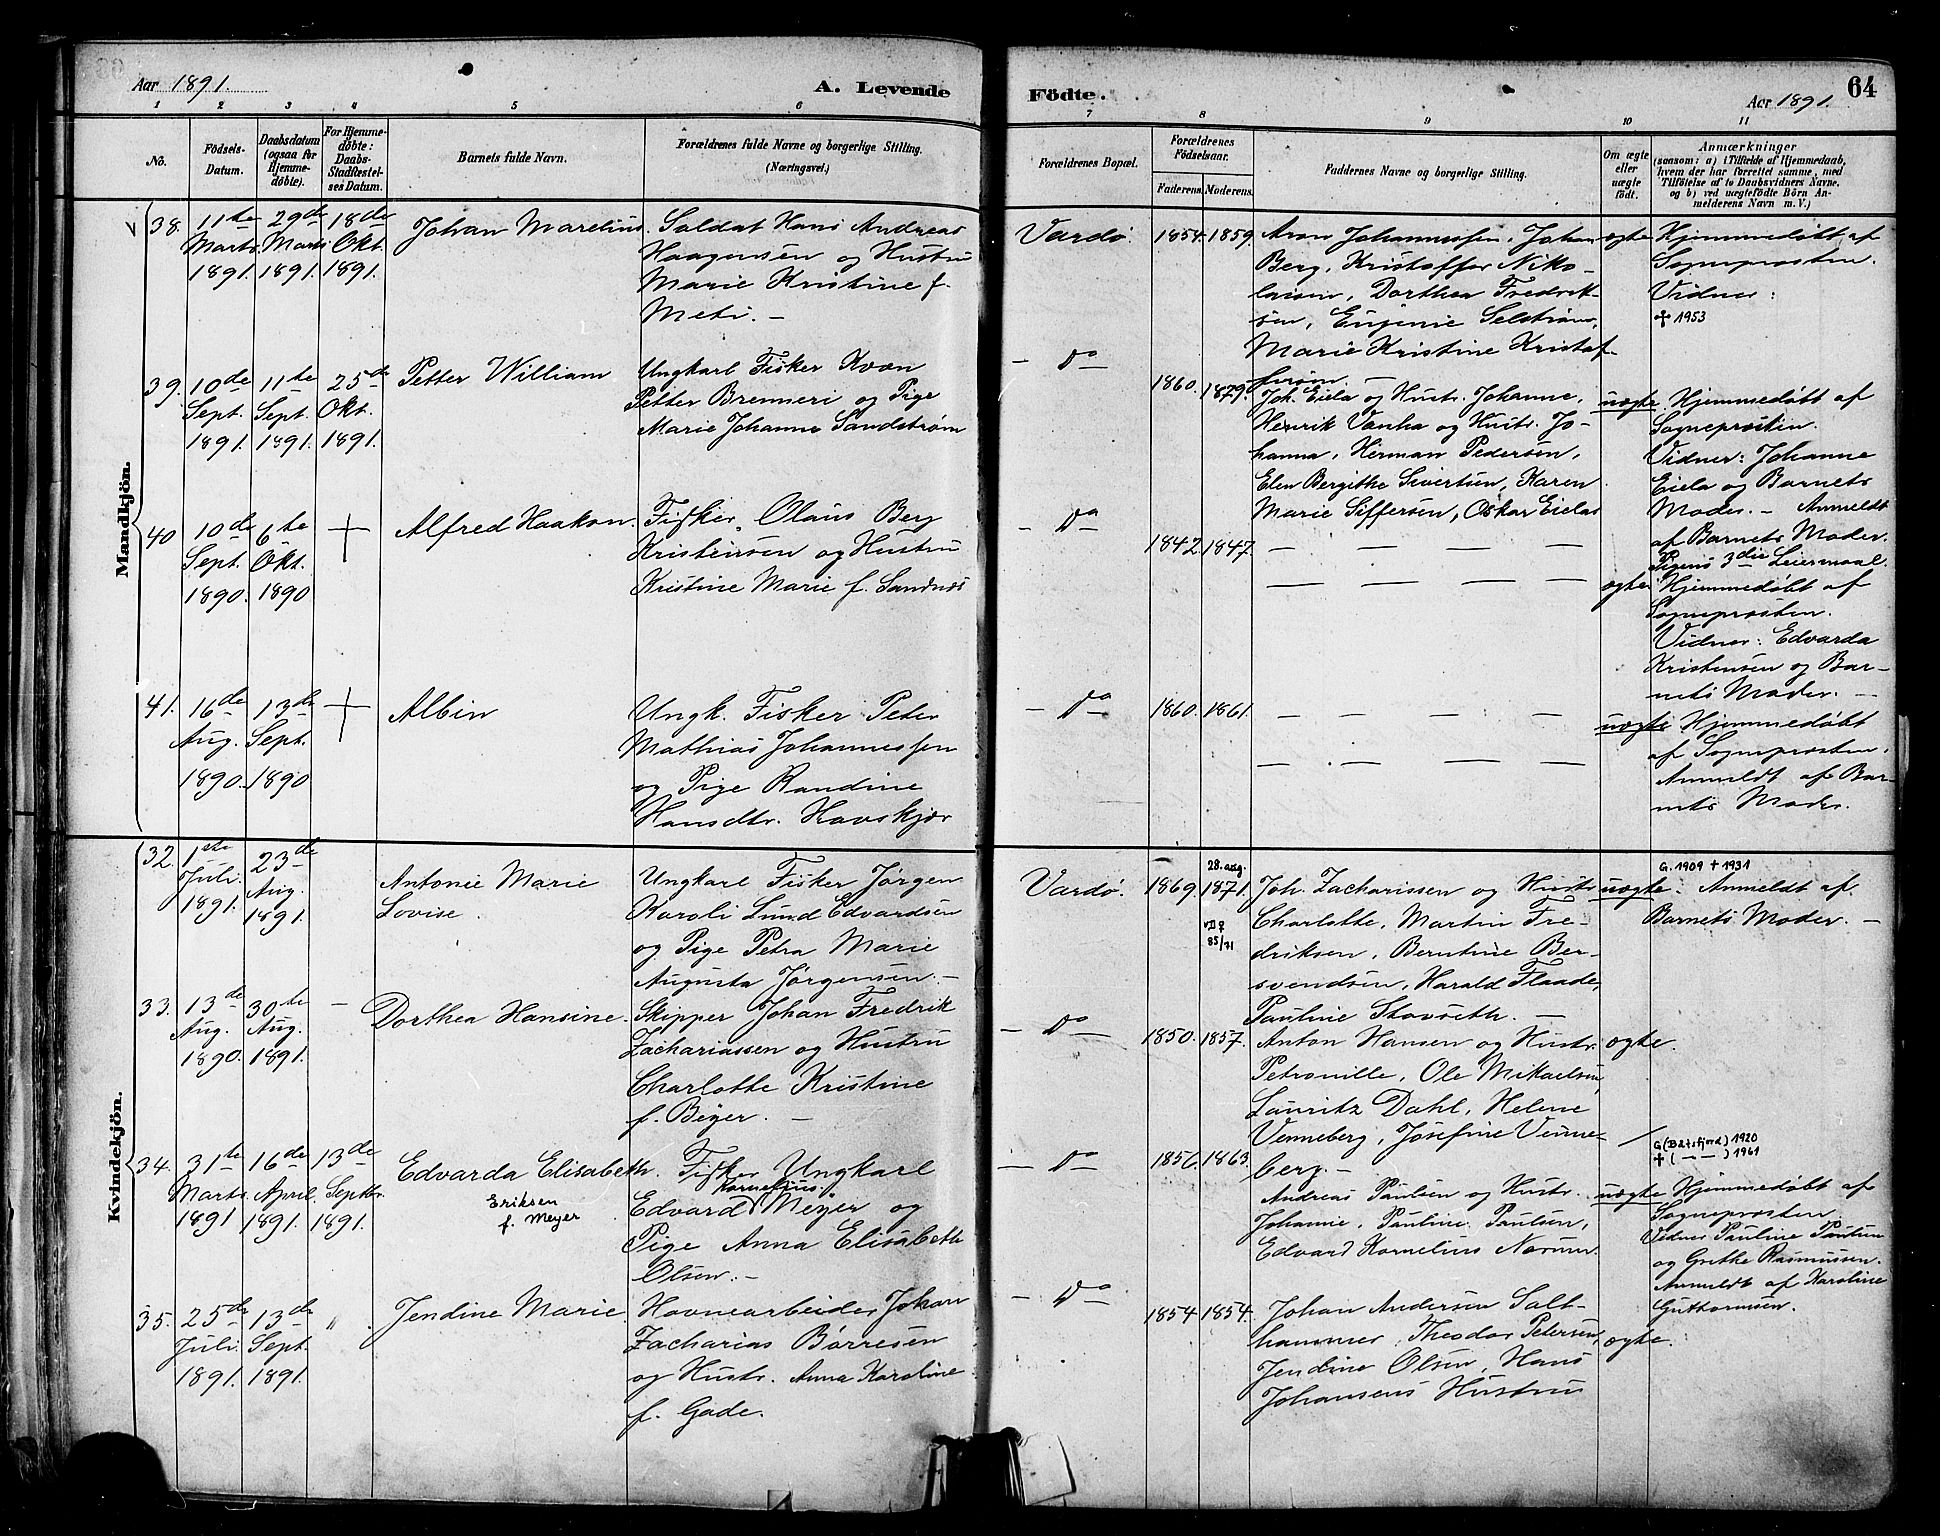 Aar 1891.
A. Levende
Födte.
Aar 1891.
64
1 2 3 4 5 6 7 8 9 10 11
No.
Födsels-
Datum.
Daabsdatum
(ogsaa for
Hjemme-
döbte).
For Hjemme-
döbte:
Daabs-
Stadfæstel-
ses Datum.
Barnets fulde Navn.
Forældrenes fulde Navne og borgerlige Stilling.
(Næringsvei.)
Forældrenes Bopæl.
Forældrenes
Födselsaar.
Faderens. Moderens.
Faddernes Navne og borgerlige Stilling.
Om ægte
eller
uægte
födt.
Anmærkninger
(saasom: a) i Tilfælde af Hjemmedaab,
hvem der har forrettet samme, med
Tilföielse af to Daabsvidners Navne,
og b) ved uægtefödte Börn An-
melderens Navn m. V.)
Mandkjön.
38.
11te
Marts
1891.
29de
Marts
1891.
18de
Okt.
1891.
Johan Marelius
Soldat Hans Andreas
Haagensen og Hustru
Marie Kristine f.
Meti. —
Vardø.
1854. 1859.
Aron Johannessen, Johan
Berg, Kristoffer Niko-
laisen, Dorthea Fredrik-
sen, Eugenie Selstrøm,
Marie Kristine Kristof-
fersøn. —
ægte
Hjemmedøbt af
Sogneprosten.
Vidner:
✝ 1953
39.
10de
Sept.
1891.
11te
Sept.
1891.
25de
Okt.
1891.
Petter William
Ungkarl Fisker Kvæn
Petter Brenneri og Pige
Marie Johanne Sandstrøm
— Do —
1860. 1879.
Joh. Eiela og Hustr. Johanne,
Henrik Vanha og Hustr. Jo-
hanna, Herman Pedersen,
Elen Bergithe Sivertsen, Karen
Marie Siffersen, Oskar Eielas
uægte
Hjemmedøbt af
Sogneprosten.
Vidner: Johanne
Eiela og Barnets
Moder. — Anmeldt
af Barnets Moder.
Pigens 3die Leiermaal.
40
10de
Sept.
1890.
6te
Okt.
1890
Alfred Haakon.
Fisker Olaus Berg
Kristensen og Hustru
Kristine Marie f. Sandnes
— Do —
1842. 1847.
— — — —
— — — —
ægte
Hjemmedøbt af
Sogneprosten.
Vidner: Edvarda
Kristensen og Bar-
nets Moder. —
41.
16de
Aug.
1890.
13de
Sept.
1890
Albin
Ungk. Fisker Peter
Mathias Johannessen
og Pige Randine
Hansdtr. Havskjær
— Do —
1860. 1861.
— — — —
— — — —
uægte
Hjemmedøbt
af Sogneprosten.
Anmeldt af Bar-
nets Moder.
Kvindekjön.
32.
1ste
Juli
1891.
23de
Aug.
1891.
Antonie Marie
Lovise.
Ungkarl Fisker Jørgen
Karoli Lund Edvardsen
og Pige Petra Marie
Augusta Jørgensen. —
Vardø.
1869.
28. aug.
1871.
85/71
Joh. Zacharissen og Hustr.
Charlotte, Martin Fre-
driksen, Berntine Ber-
svendsen, Harald Flaade,
Pauline Stavseth. —
uægte.
G. 1909 ✝ 1931
Anmeldt af
Barnets Moder. —
33.
13de
Aug.
1890.
30te
Aug.
1891.
—
Dorthea Hansine.
Skipper Johan Fredrik
Zachariassen og Hustru
Charlotte Kristine
f. Beyer. —
— Do —
1850. 1857.
Anton Hansen og Hustr.
Petronille, Ole Mikaelsen,
Lauritz Dahl, Helene
Venneberg, Josefine Venne-
berg. —
ægte.
34.
31te
Marts
1891
16de
April
1891.
13de
Septbr.
1891.
Edvarda Elisabeth.
Eriksen
f. Meyer
Fisker Ungkarl
Kornelius
Edvard Meyer og
Pige Anna Elisabeth
Olsen. —
— Do —
1856. 1863.
Andreas Paulsen og Hustr.
Johanne, Pauline Paulsen,
Edvard Kornelius Normen.
uægte
G (Båtsfjord) 1920
✝ ( — — ) 1961
Hjemmedøbt af
Sogneprosten.
Vidner Pauline Paulsen
og Grethe Rasmussen.
Anmeldt af Karoline
Guttormsen.
35.
25de
Juli
1891.
13de
Sept.
1891.
"
Jendine Marie
Havnearbeider Johan
Zacharias Børresen
og Hustr. Anna Karoline
f. Gade.
— Do —
1854 1854.
Johan Andersen Salt-
hammer, Theodor Petersen,
Jendine Olsen, Hans
Johansens Hustru
ægte.